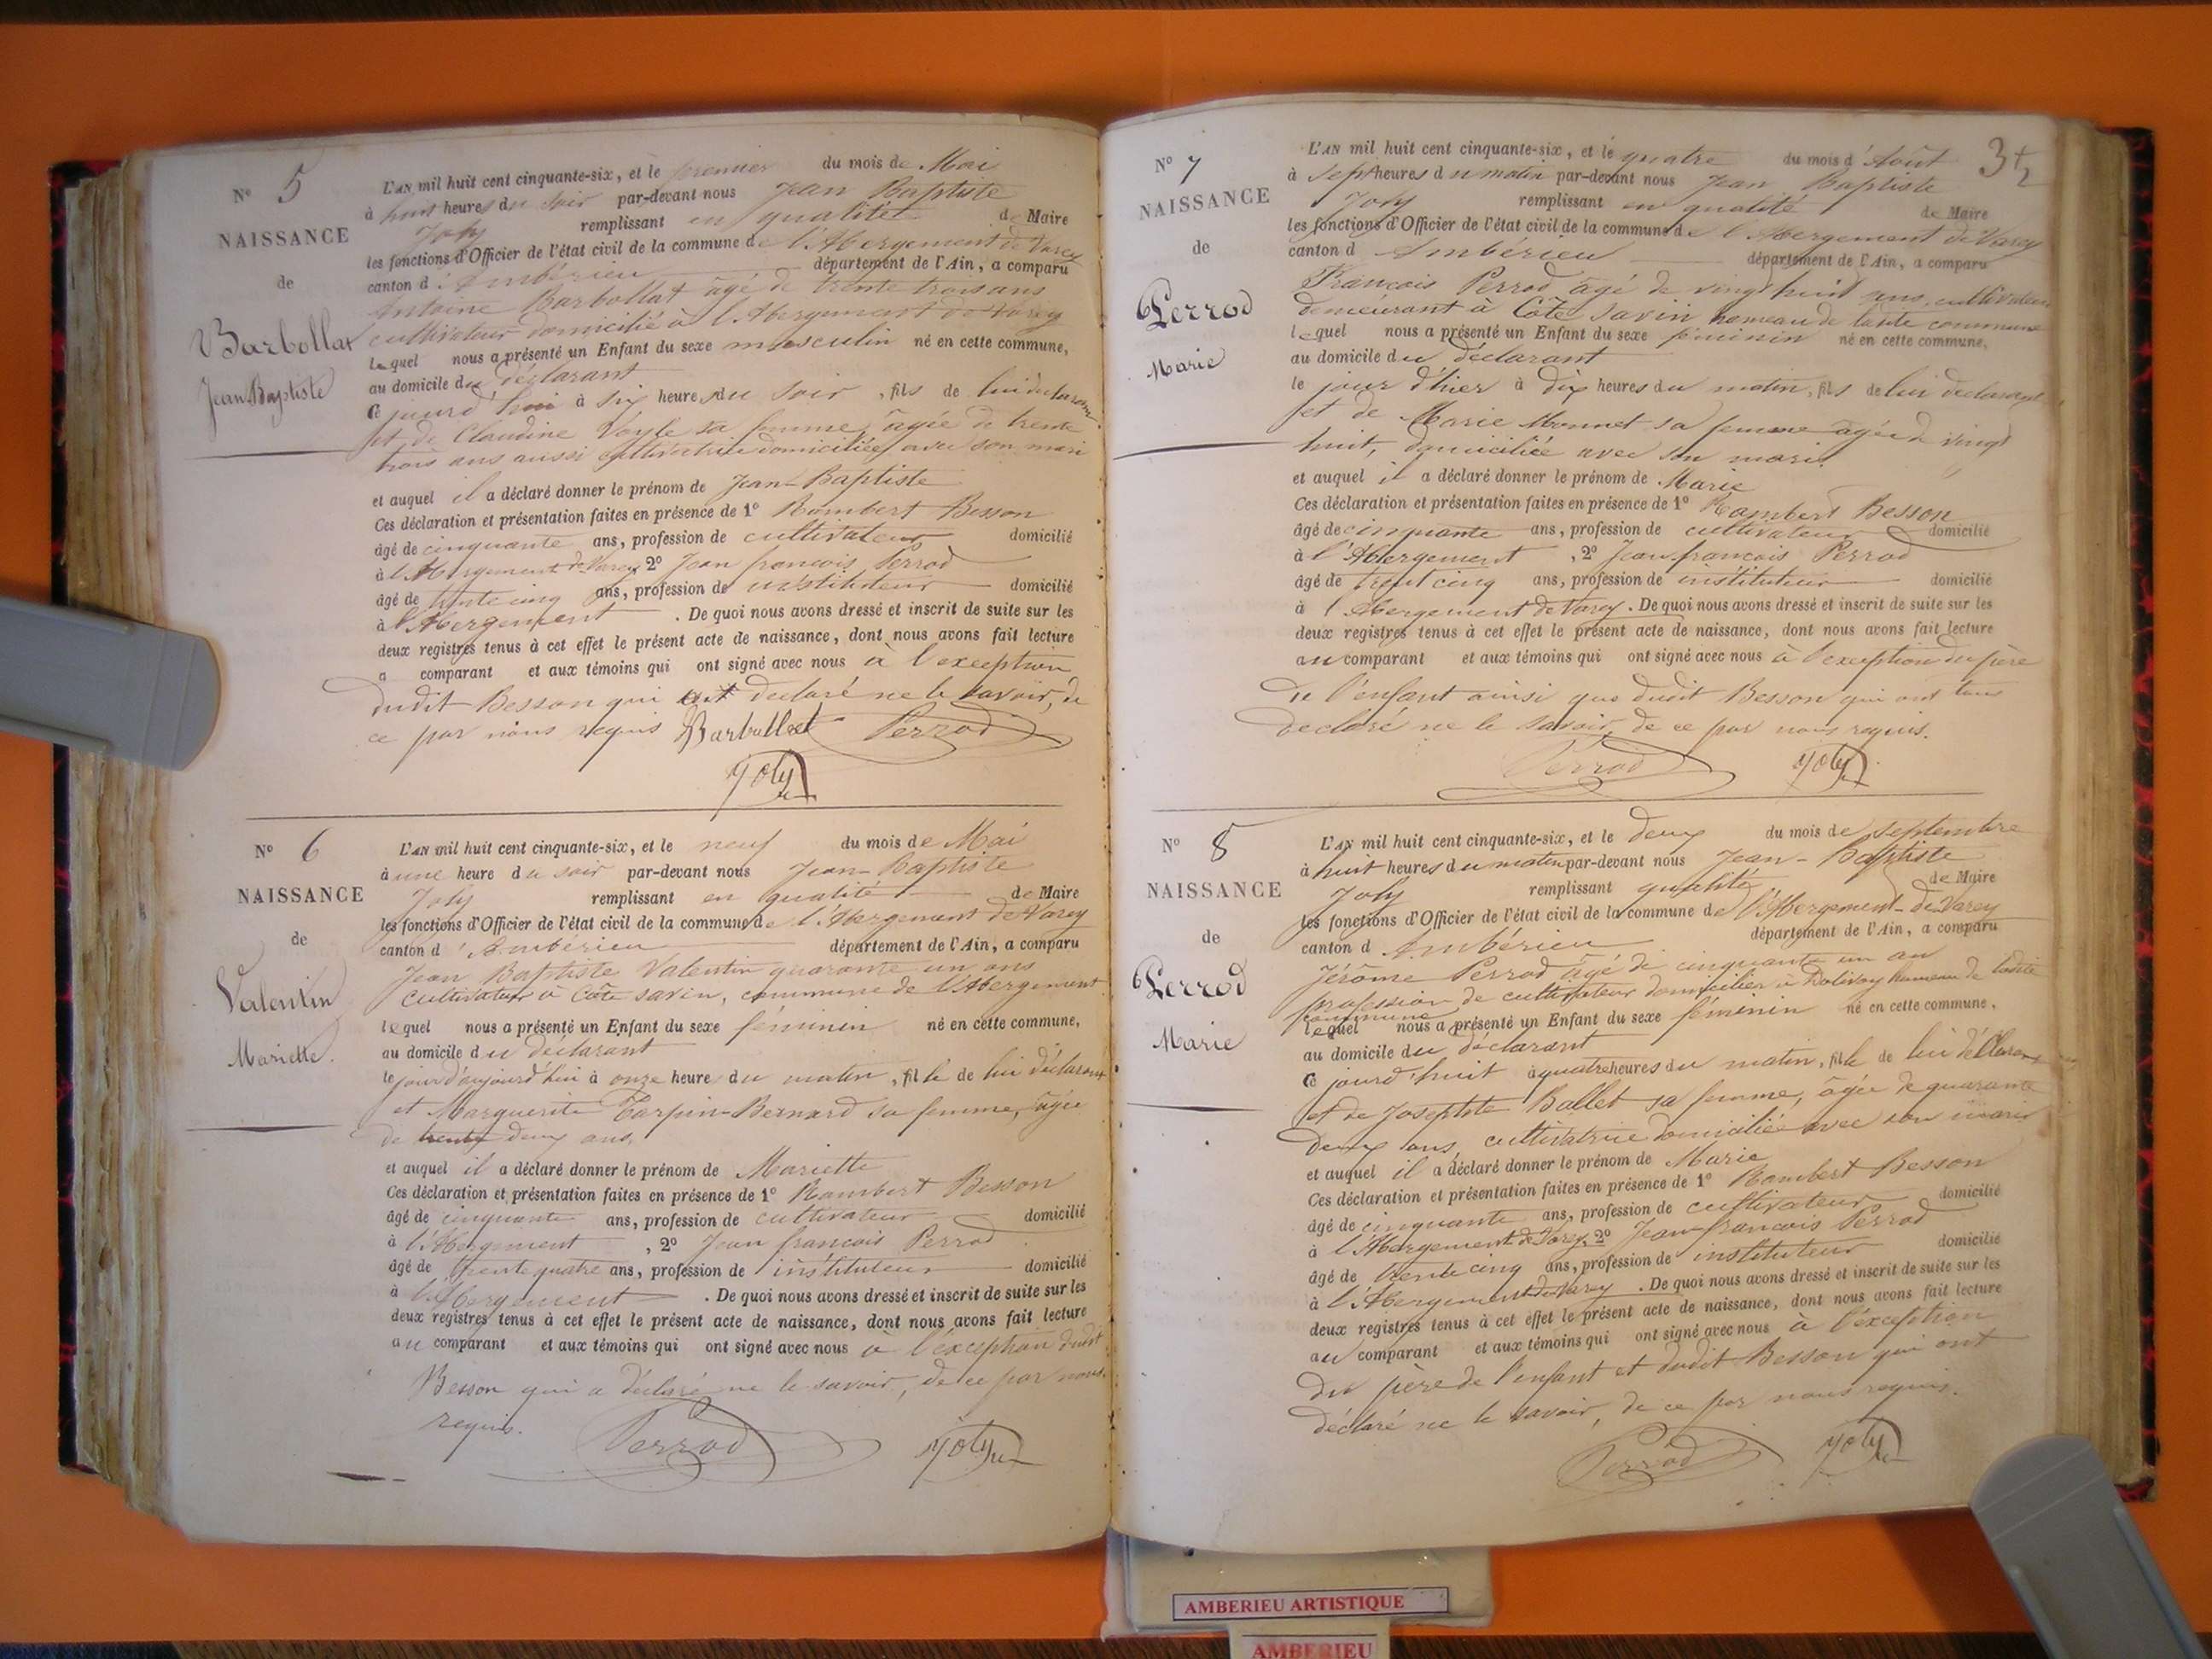 N° 5
NAISSANCE
de
Barbollat
Jean Baptiste
L'AN mil huit cent cinquante-six, et le premier du mois de Mai
à huit heures du soir par-devant nous Jean Baptiste
Joly remplissant en qualité de Maire
les fonctions d'Officier de l'état civil de la commune de l'Abergement de Varey
canton d'Ambérieu département de l'Ain, a comparu
Antoine Barbollat âgé de trente trois ans
cultivateur domicilié à l'Abergement de Varey
lequel nous a présenté un Enfant du sexe masculin né en cette commune,
au domicile du déclarant
Ce jourd'hui à six heures du soir, fils de lui déclarant
et de Claudine Voyle sa femme, âgée de trente
trois ans aussi cultivatrice domiciliée avec son mari
et auquel il a déclaré donner le prénom de Jean-Baptiste
Ces déclaration et présentation faites en présence de 1° Rambert Besson
âgé de cinquante ans, profession de cultivateur domicilié
à l'Abergement de Varey 2° Jean françois Perrod
âgé de trente cinq ans, profession de instituteur domicilié
à l'Abergement . De quoi nous avons dressé et inscrit de suite sur les
deux registres tenus à cet effet le présent acte de naissance, dont nous avons fait lecture
a comparant et aux témoins qui ont signé avec nous à l'exception
dudit Besson qui a déclaré ne le savoir, de
ce par nous requis Barbollat Perrod
Joly
N° 6
NAISSANCE
de
Valentin
Mariette.
L'AN mil huit cent cinquante-six, et le neuf du mois de Mai
à une heure du soir par-devant nous Jean-Baptiste
Joly remplissant en qualité de Maire
les fonctions d'Officier de l'état civil de la commune de l'Abergement de Varey
canton d'Ambérieu département de l'Ain, a comparu
Jean Baptiste Valentin quarante un ans
cultivateur à Côte savin, commune de l'Abergement
lequel nous a présenté un Enfant du sexe féminin né en cette commune,
au domicile du déclarant
le jour d'aujourd'hui à onze heure du matin, fille de lui déclarant
et Marguerite Tarpin-Bernard sa femme, âgée
de trente deux ans,
et auquel il a déclaré donner le prénom de Mariette
Ces déclaration et présentation faites en présence de 1° Rambert Besson
âgé de cinquante ans, profession de cultivateur domicilié
à l'Abergement , 2° Jean francois Perrod
âgé de trente quatre ans, profession de instituteur domicilié
à l'Abergement . De quoi nous avons dressé et inscrit de suite sur les
deux registres tenus à cet effet le présent acte de naissance, dont nous avons fait lecture
au comparant et aux témoins qui ont signé avec nous à l'exception dudit
Besson qui a déclaré ne le savoir, de ce par nous
requis.
Perrod Joly
3
N° 7
NAISSANCE
de
Perrod
Marie
L'AN mil huit cent cinquante-six, et le quatre du mois d'Août
à Sept heures du matin par-devant nous Jean Baptiste
Joly remplissant en qualité de Maire
les fonctions d'Officier de l'état civil de la commune de l'Abergement de Varey
canton d Ambérieu département de l'Ain, a comparu
Francois Perrod âgé de vingt huit ans, cultivateur
demeurant à Côte Savin hameau de ladite commune
lequel nous a présenté un Enfant du sexe féminin né en cette commune,
au domicile du déclarant
le jour d'hier à dix heures du matin, fils de lui déclarant
et de Marie Monnet sa femme âgée de vingt
huit, domiciliée avec son mari
et auquel il a déclaré donner le prénom de Marie
Ces déclaration et présentation faites en présence de 1° Rambert Besson
âgé de cinquante ans, profession de cultivateur domicilié
à l'Abergement , 2° Jean francois Perrod
âgé de trent cinq ans, profession de instituteur domicilié
à l'Abergement de Varey . De quoi nous avons dressé et inscrit de suite sur les
deux registres tenus à cet effet le présent acte de naissance, dont nous avons fait lecture
au comparant et aux témoins qui ont signé avec nous à l'exception du père
de l'enfant ainsi que dudit Besson qui ont tous
déclaré ne le savoir, de ce par nous requis.
Perrod Joly
N° 8
NAISSANCE
de
Perrod
Marie
L'AN mil huit cent cinquante-six, et le deux du mois de septembre
à huit heures du matin par-devant nous Jean-Baptiste
Joly remplissant qualité de Maire
les fonctions d'Officier de l'état civil de la commune de l'Abergement-de-Varey
canton d Ambérieu département de l'Ain, a comparu
Jérôme Perrod âgé de cinquante un an
profession de cultivateur domicilier à Dalivoy hameau de ladite
commune
lequel nous a présenté un Enfant du sexe féminin né en cette commune,
au domicile du déclarant
Ce jourd'huit à quatre heures du matin, fille de lui déclarant
et de Josephte Ballet sa femme, âgée de quarante
deux ans, cultivatrice domiciliée avec son mari
et auquel il a déclaré donner le prénom de Marie
Ces déclaration et présentation faites en présence de 1° Rambert Besson
âgé de cinquante ans, profession de cultivateur domicilié
à l'Abergement de Varey, 2° Jean-francois Perrod
âgé de trente cinq ans, profession de instituteur domicilié
à l'Abergement de Varey . De quoi nous avons dressé et inscrit de suite sur les
deux registres tenus à cet effet le présent acte de naissance, dont nous avons fait lecture
au comparant et aux témoins qui ont signé avec nous à l'exception
du père de l'enfant et dudit Besson qui ont
déclaré ne le savoir, de ce par nous requis.
Perrod Joly
AMBERIEU ARTISTIQUE
AMBERIEU